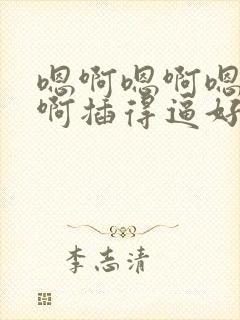 嗯啊嗯啊嗯
啊插得逼好
李志清